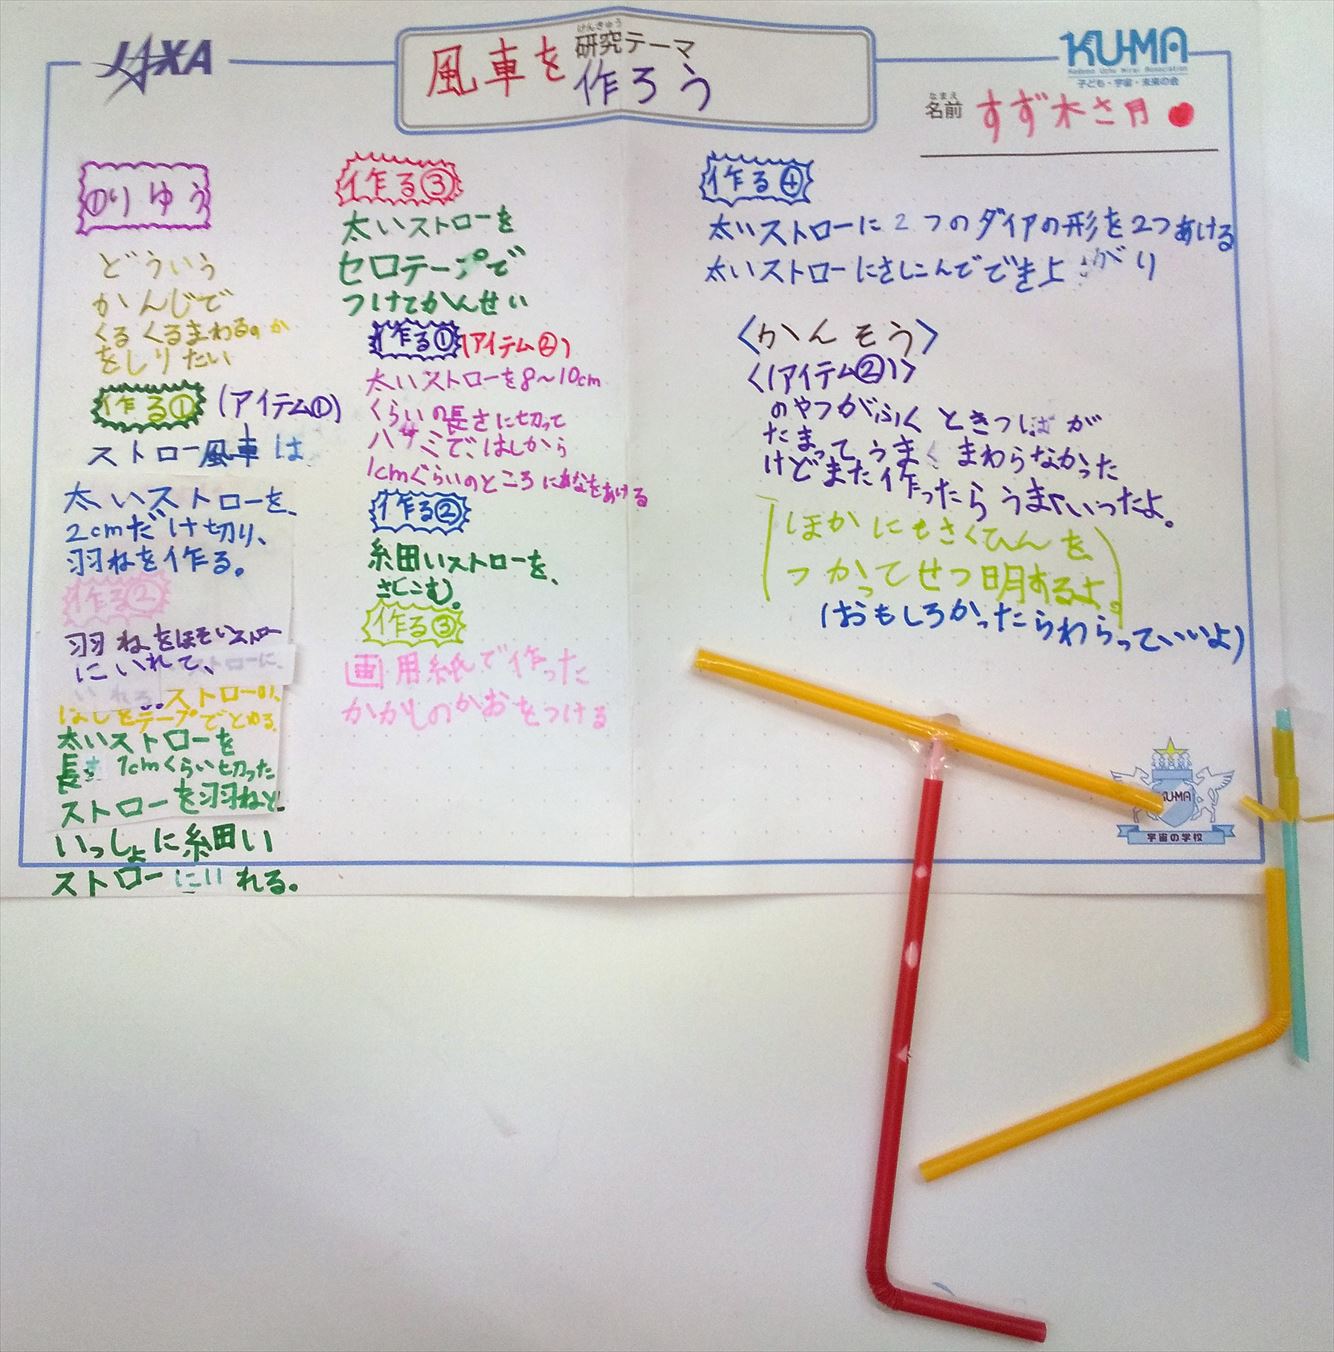 JAXA
けんきゅう
研究テーマ
風車を作ろう
KU-MA
Kodomo Uchu Mirai Association
子ども・宇宙・未来の会
なまえ
名前
すず木さ月
①りゆう
どういう
かんじで
くるくるまわるのか
をしりたい
作る① (アイテム①)
ストロー風車は
太いストローを、
2cmだけ切り、
羽ねを作る。
作る②
羽ねをほそいストロー
にいれて、
ストローの、
はしをテープでとめる。
太いストローを
長さ1cmくらい切った
ストローを羽ねと
いっしょに細い
ストローにいれる。
作る③
太いストローを
セロテープで
つけてかんせい
作る①(アイテム②)
太いストローを8〜10cm
くらいの長さに切って
ハサミで、はしから
1cmぐらいのところにあなをあける
作る②
細いストローを、
さしこむ。
作る③
画用紙で作った
かがしのかおをつける
作る④
太いストローに2つのダイアの形を2つあける
太いストローにさしこんででき上がり
〈かんそう〉
〈(アイテム②)〉
のやつがふくときつばが
たまってうまくまわらなかった
けどまた作ったらうまくいったよ。
(ほかにもさくひんを
つかってせつ明あるよ。)
(おもしろかったらわらっていいよ)
KU-MA
宇宙の学校